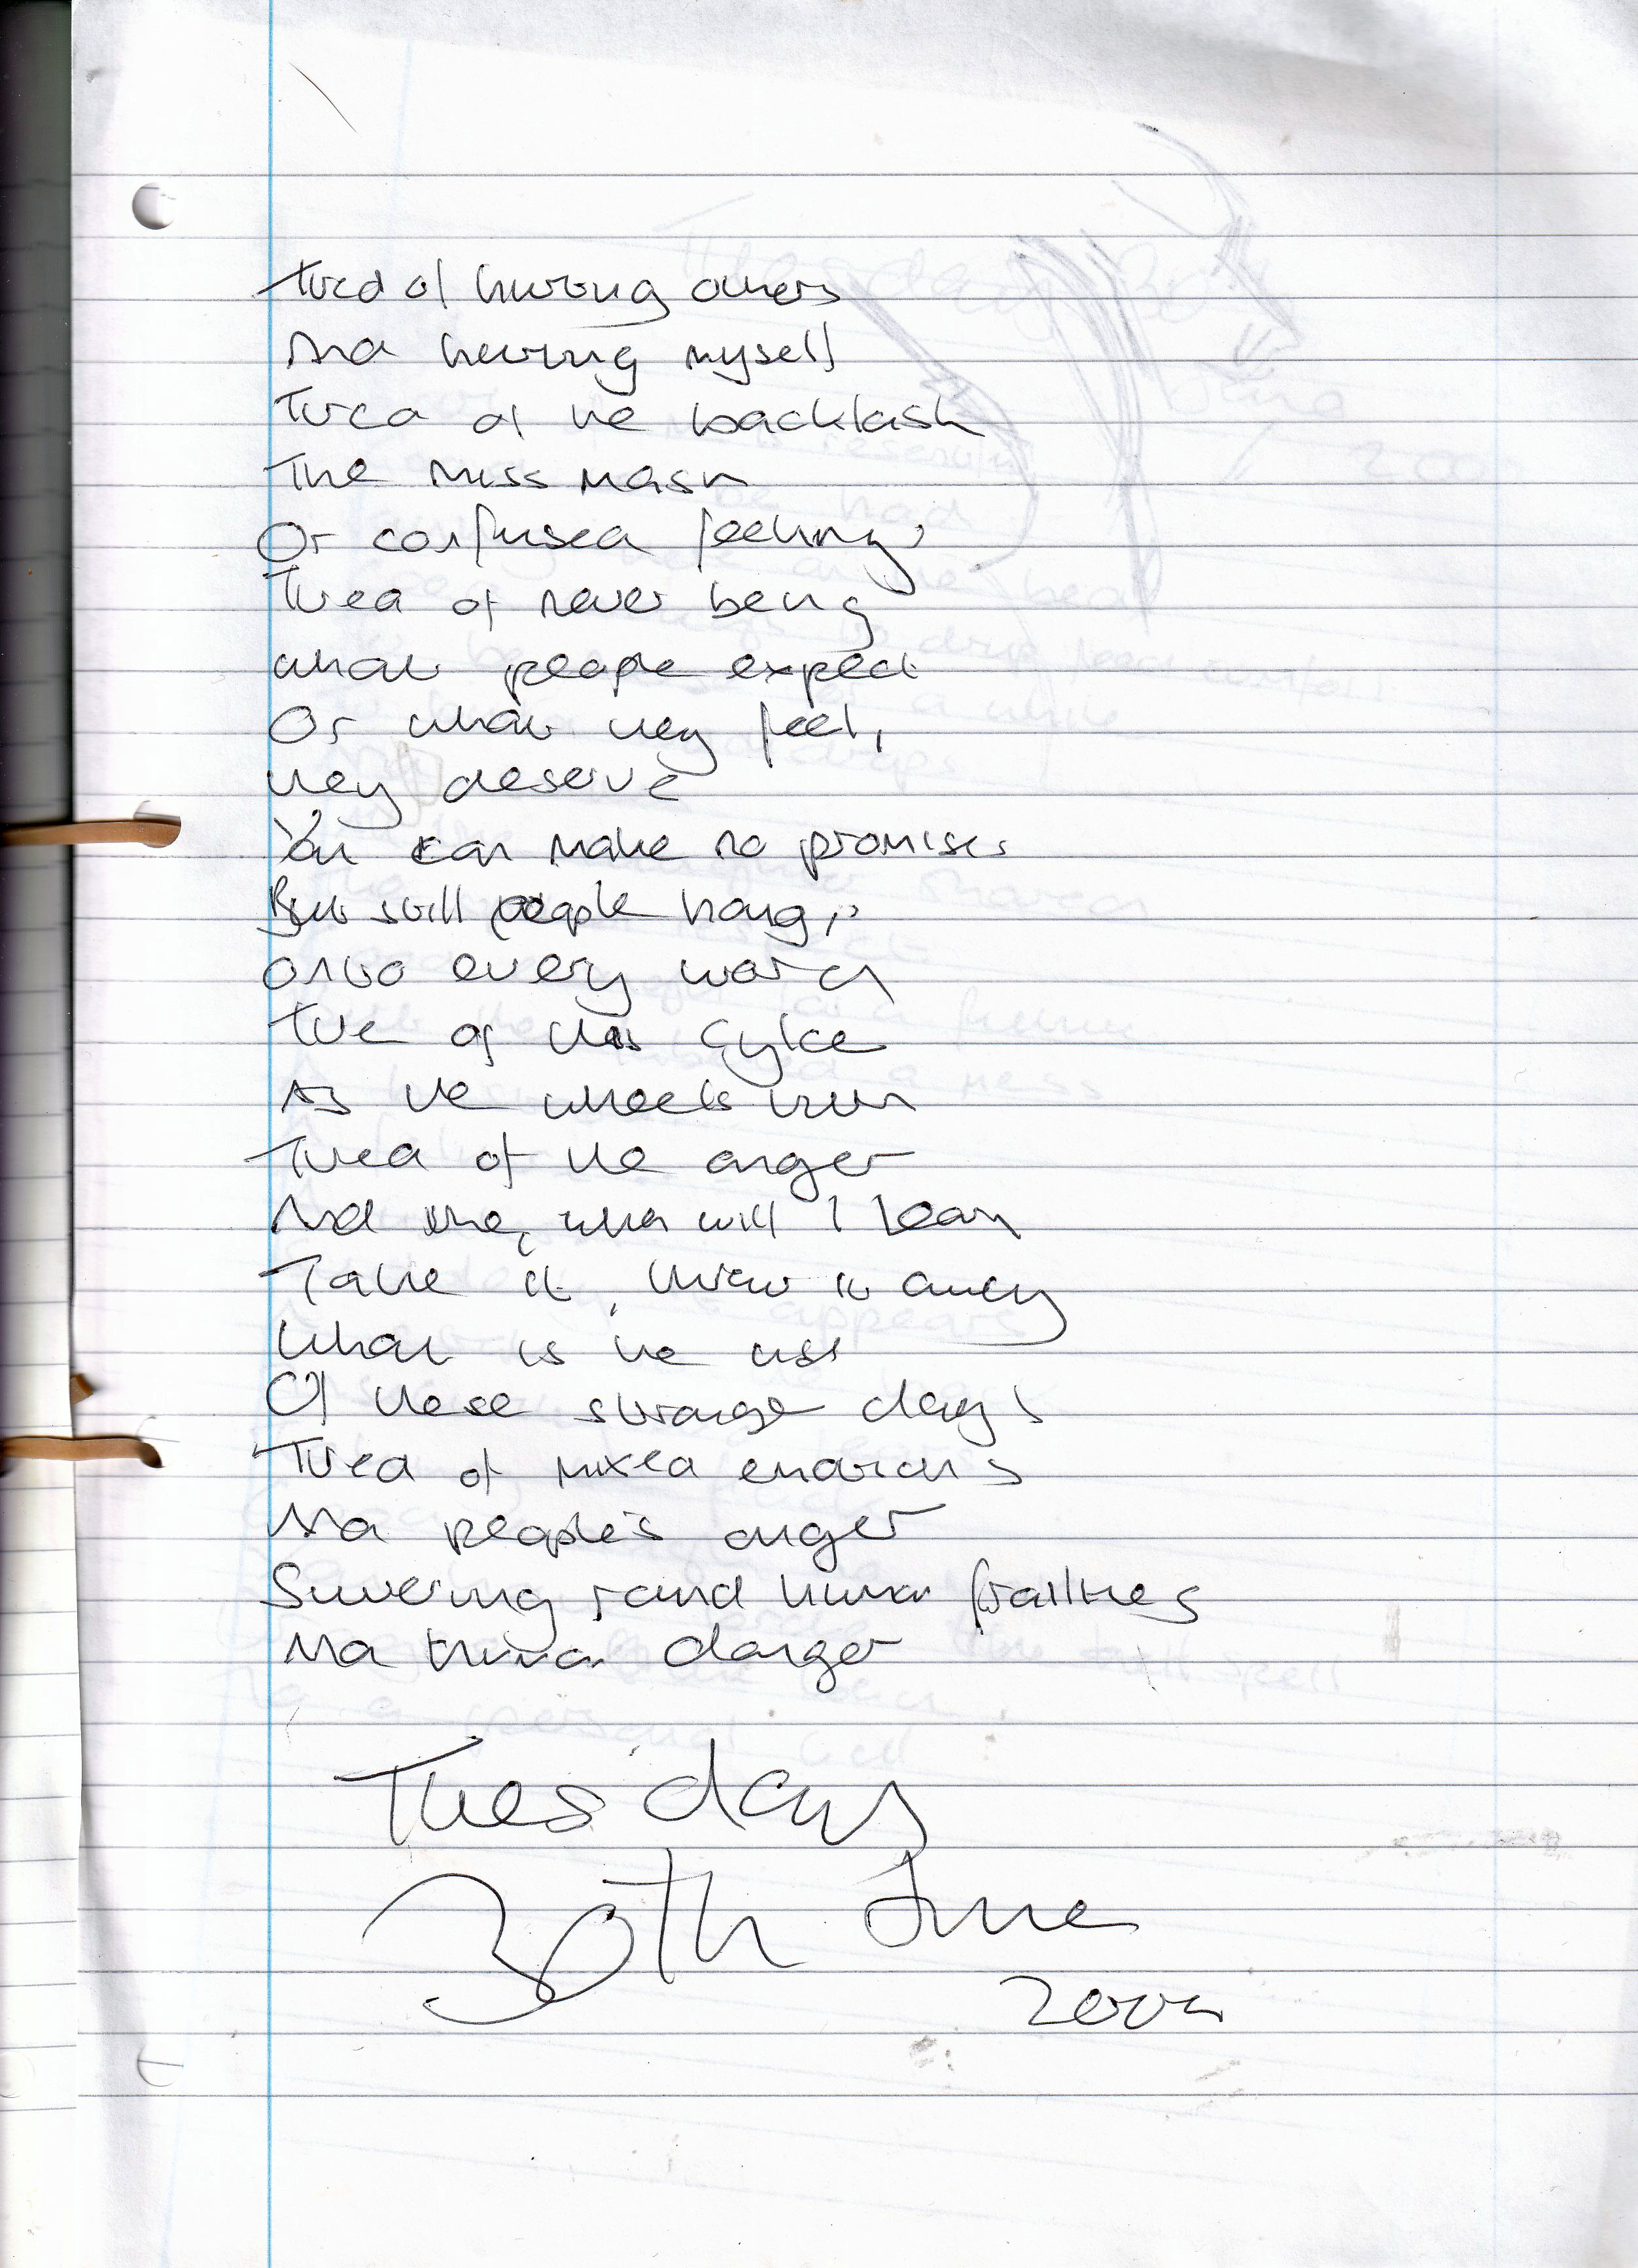 Tired of hurting others
And hurting myself
Tired of the backlash
The miss mash
Of confused feelings
Tired of never being
what people expect
Or what they feel,
they deserve
You can make no promises
But still people hang,
onto every word
Tire of this cylce
As the wheels turn
Tired of the anger
And me, when will I learn
Take it, throw it away
What is the use
Of these strange days
Tired of mixed emotions
And people's anger
Suvering round human frailties
And danger
Tuesday
30th June